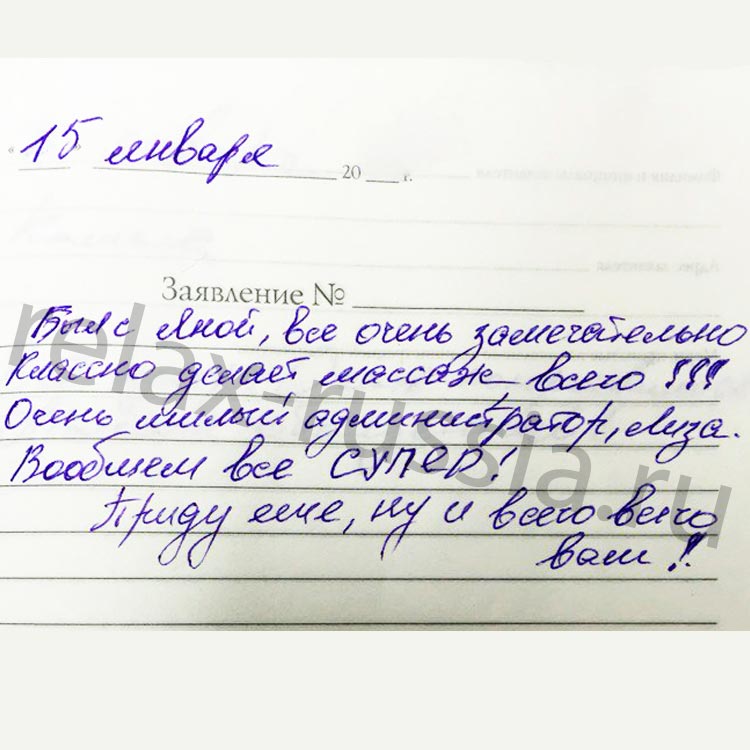 « 15 » января 20 ___ г.
Заявление № ___
Был с Яной, все очень замечательно
Классно делает массаж, всего !!!
Очень милый администратор, Лиза.
Вообщем все СУПЕР!
Приду еще, ну и всего всего
вам!
relax-russia.ru